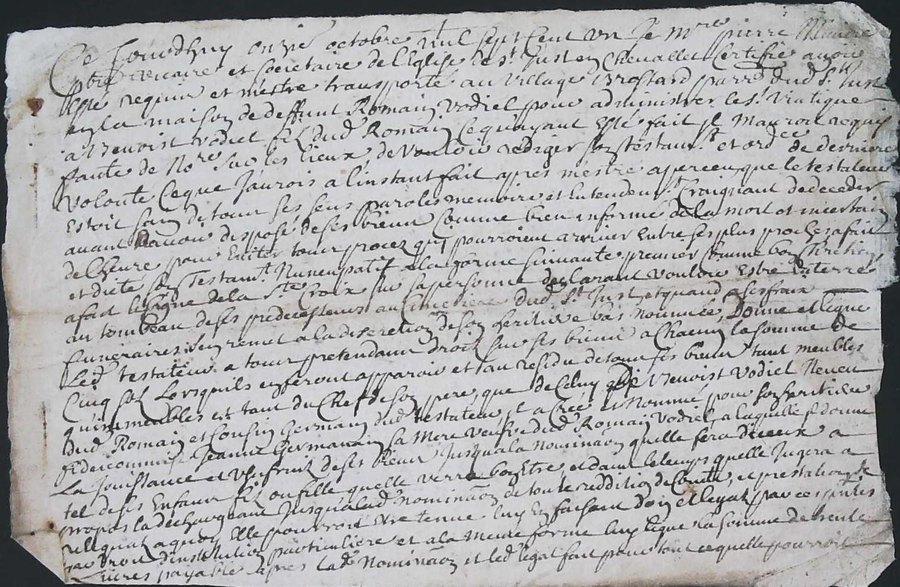 Ce Jourdhuy onzie octobre mil sept Cent un Je mre pierre
pbre vicaire et societaire de leglise de st Just en Chevallet Certifie avoir
este requis et mestre transporté au village Brossard parre dud st Just
en la maison de deffunt Romain Vodiel pour administrer le st Viatique
a Benoist Vodiel fils dud Romain Ce quayant esté fait Je Mauroit requis
faute de Nore sur les lieux de Vouloir rediger son testamt et ordce de derniere
volonté Ceque Jaurois a linstant fait apres mestre apperceu que le testateur
Estoit sain de tous ses sens paroles memoires et Entendemt Craignant de deceder
avant davoir disposé de ses biens Comme bien informé de la mort et incertain
de lheure pour Eviter tous procez qui pourroient arriver Entre ses plus proches a fait
et dicté son Testamt Nuncupatif a la forme suivante premier Comme bon Chretien
a fait le signe de la Ste Croix sur sa personne declarant vouloir Estre Enterré
au tombeau de ses predecesseurs au Cimetiere dud St Just et quand a ses fraix
funeraires sen remet a la discretion de son heritiere bas nommée Donne et legue
Led testateur a tous pretendans droit sur ses biens a Chacun la somme de
Cinq sol Lorsquils en feront apparoir et au residu de tous ses biens tant meubles
quimmeubles et tant du Chef de son pere que de Celuy de Benoist Vodiel Neveu
Dud Romain et Cousin Germain dud testateur il a Créé et Nommé pour son heritiere
fideicommise Jeanne Germanain sa Mere veufve dud Romain Vodiel a laquelle il donne
La Jouissance et Usufruit de ses biens Jusqua la nomination quelle fera diceux a
tel de ses Enfans fils ou fille quelle verra bon Estre et dans le temps quelle Jugera a
propos la dechargeant Jusqua lad nomination de toute reddition de Compte et prestation de
reliquat a quoy Elle pourroit Estre tenue luy en faisant don et legat par ces pntes
par droit dinstitution particuliere et a la mesme forme luy legue la somme de trente
Livres payable apres lad Nomination et led legat fait pour tout ce quelle pourroit